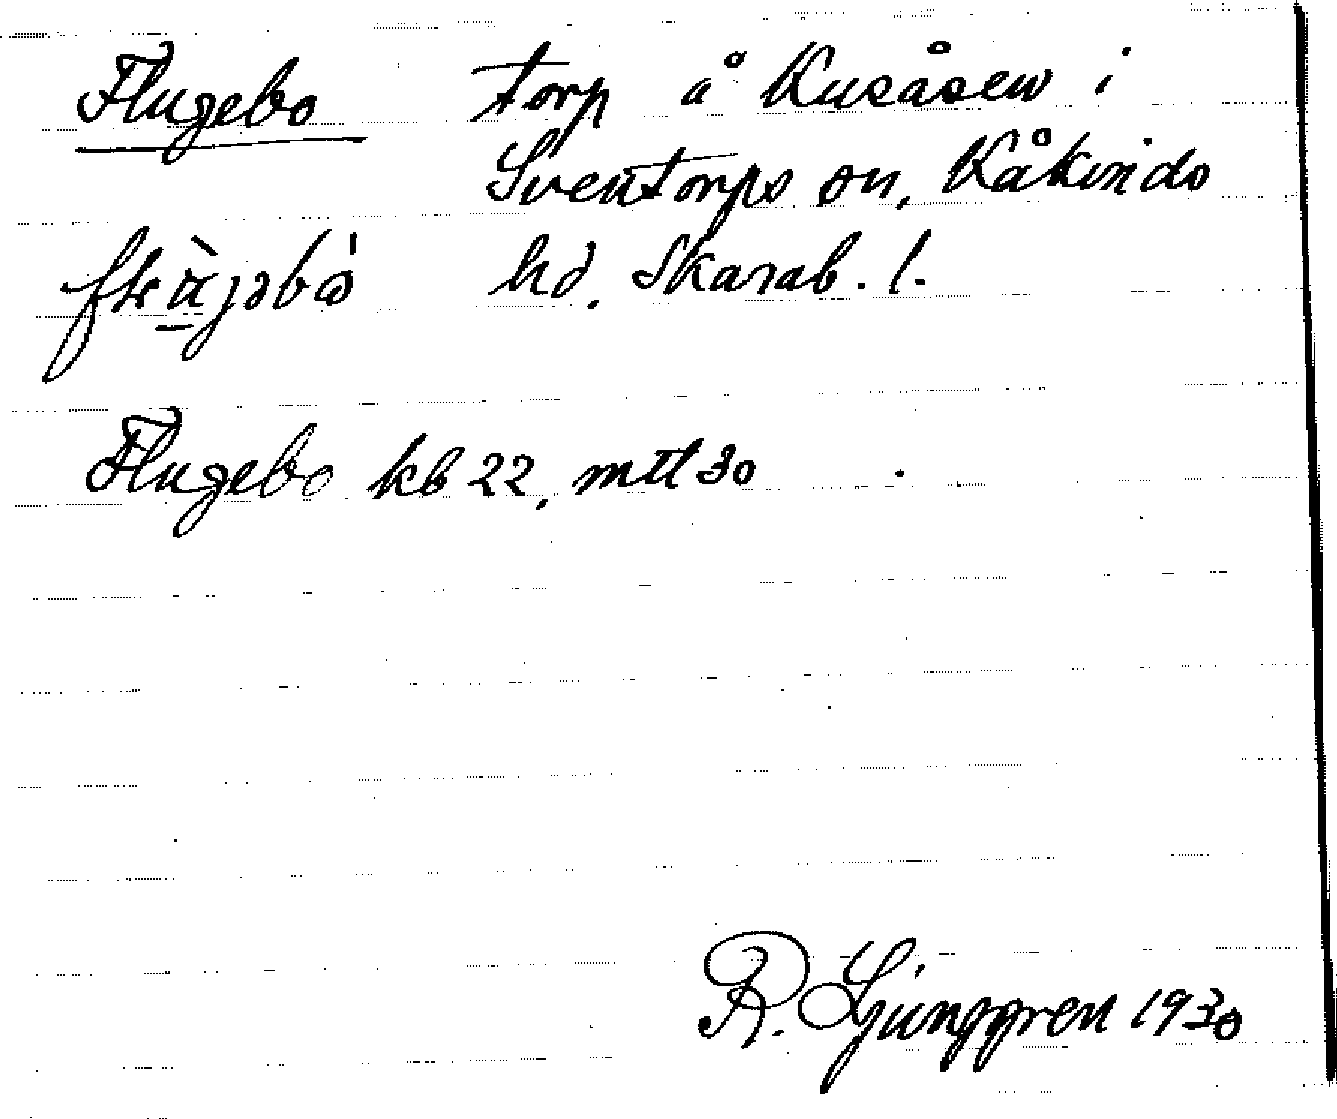 Flugebo torp å Kusåsen i
Sventorps sn, Kåkinds
hd. Skarab. l.
Flugebo kb 22, mtl 30
R. Ljunggren 1930